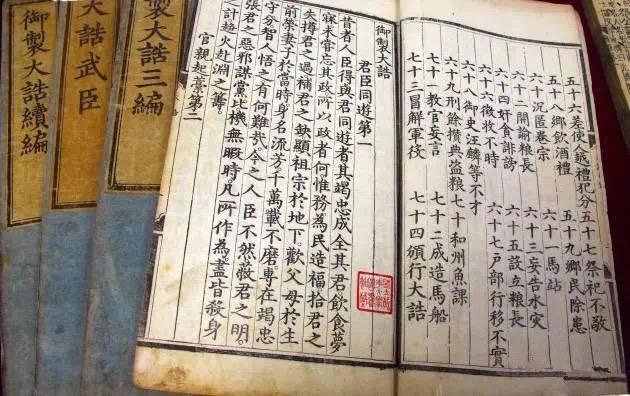 五十六差使人越禮犯分 五十七祭祀不敬
五十八鄉飲酒禮 五十九鄉民除患
六十沉匿卷宗 六十一馬站
六十二開諭粮長 六十三妄告水灾
六十四奸貪誹謗 六十五設立粮長
六十六徵收不時 六十七戶部行移不實
六十八御史汪麟等不才
六十九刑餘攢典盗粮 七十和州魚課
七十一教官妄言 七十二成造馬船
七十三冒解軍役 七十四頒行大誥
御製大誥
君臣同遊第一
昔者人臣得與君同遊者其竭忠成全其君飲食夢
寐未嘗忘其政所以政者何惟務為民造福拾君之
失撙君之過補君之缺顯祖宗於地下歡父母於生
前榮妻子於當時身名流芳千萬載不磨專在竭忠
守分智人悟之有何難哉。今之人臣不然蔽君之明。
張君之惡邪謀黨比機無暇時凡所作為盡皆殺身
之計趨火赴淵之籌。
官親起藁第二
製大誥三編
大誥武臣
御製大誥續編